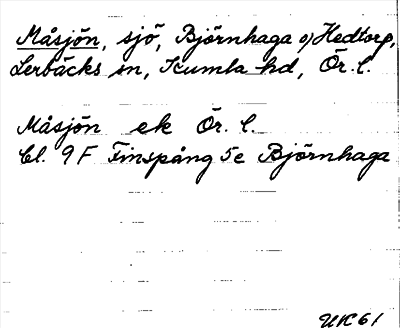 Måsjön, sjö, Björnhaga o/Hedtorp,
Lerbäcks sn, Kumla hd, Ör. l.
Måsjön ek Ör. l.
bl. 9 F Finspång 5e Björnhaga
UK 61